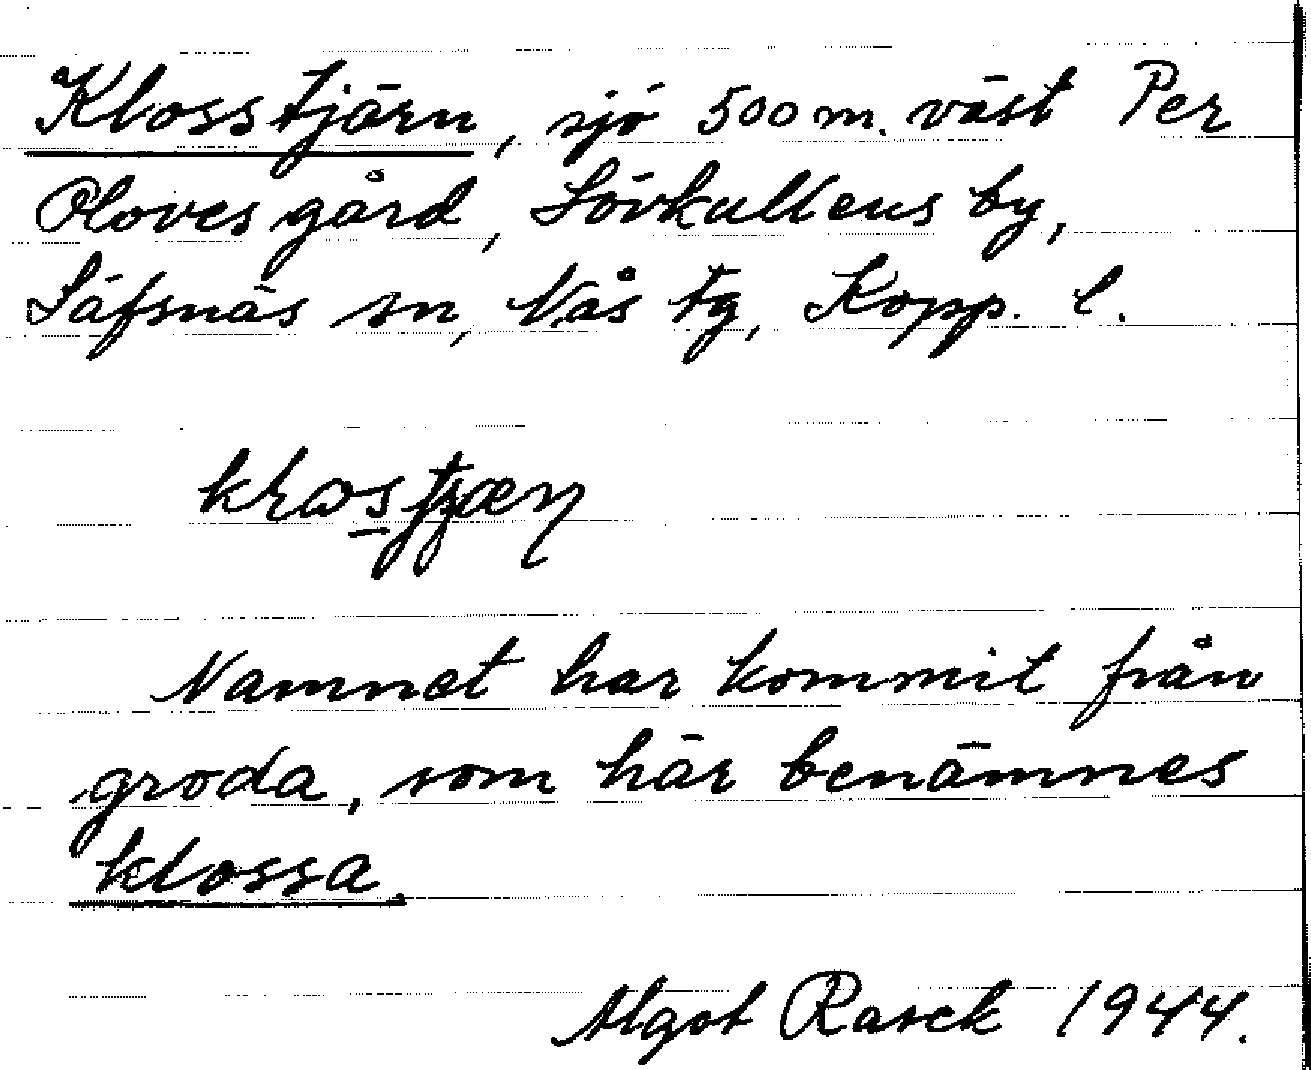 Klosstjärn, sjö 500 m. väst Per
Oloves gård, Lövkullens by,
Säfsnäs sn, Nås tg, Kopp. l.
Namnet har kommit från
groda, som här benämnes
klossa.
Algot Rasck 1944.